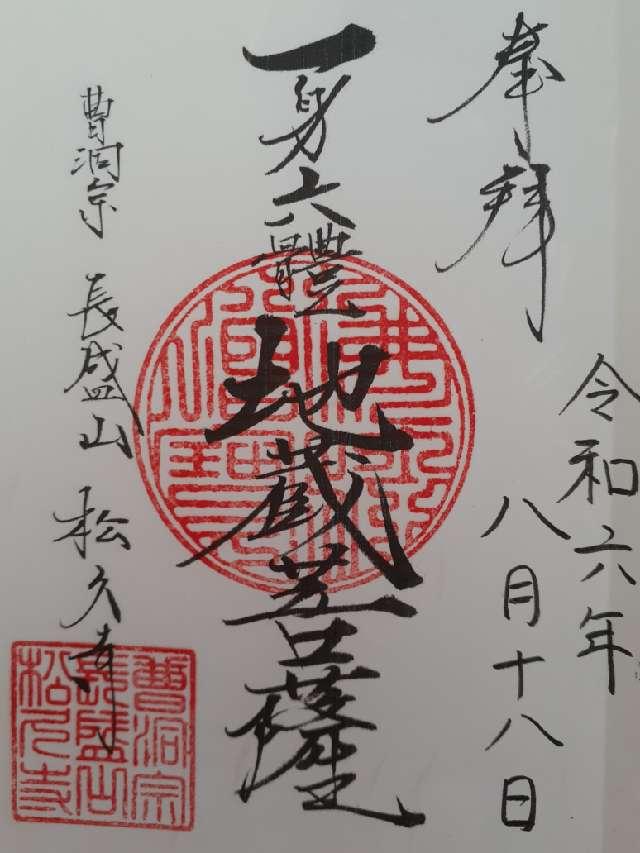 奉拝
令和六年
八月十八日
一身六體
地蔵菩薩
曹洞宗 長盛山 松久寺
曹洞宗
長盛山
松久寺